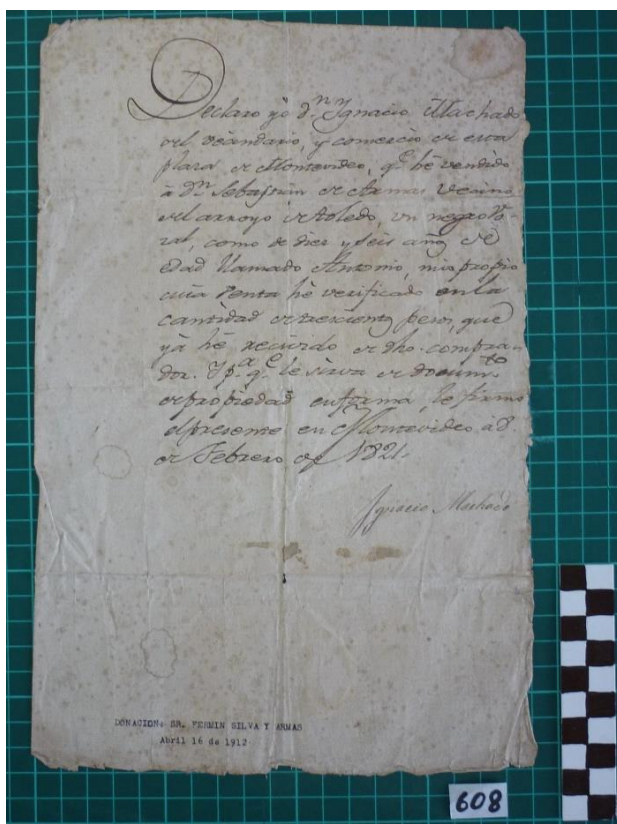 Declaro yo dn. Ygnacio Machado
del vecindario, y comercio de esta
plaza de Montevideo, qe. hé vendido
à dn. Sebastian de Armas vecino
del arroyo de toledo, un negro bo-
zal, como de diez y seis años de
edad llamado Antonio, mio propio
cuia venta hè verificado en la
cantidad de trescientos pesos, que
yà hè recivido de dho. compra-
dor. Y pa. qe. le sirva de documto
de propiedad en forma, le firmo
el presente en Montevideo à 8.
de Febrero de 1821.
Ygnacio Machado
DONACION: SR. FERMIN SILVA Y ARMAS
Abril 16 de 1912
608